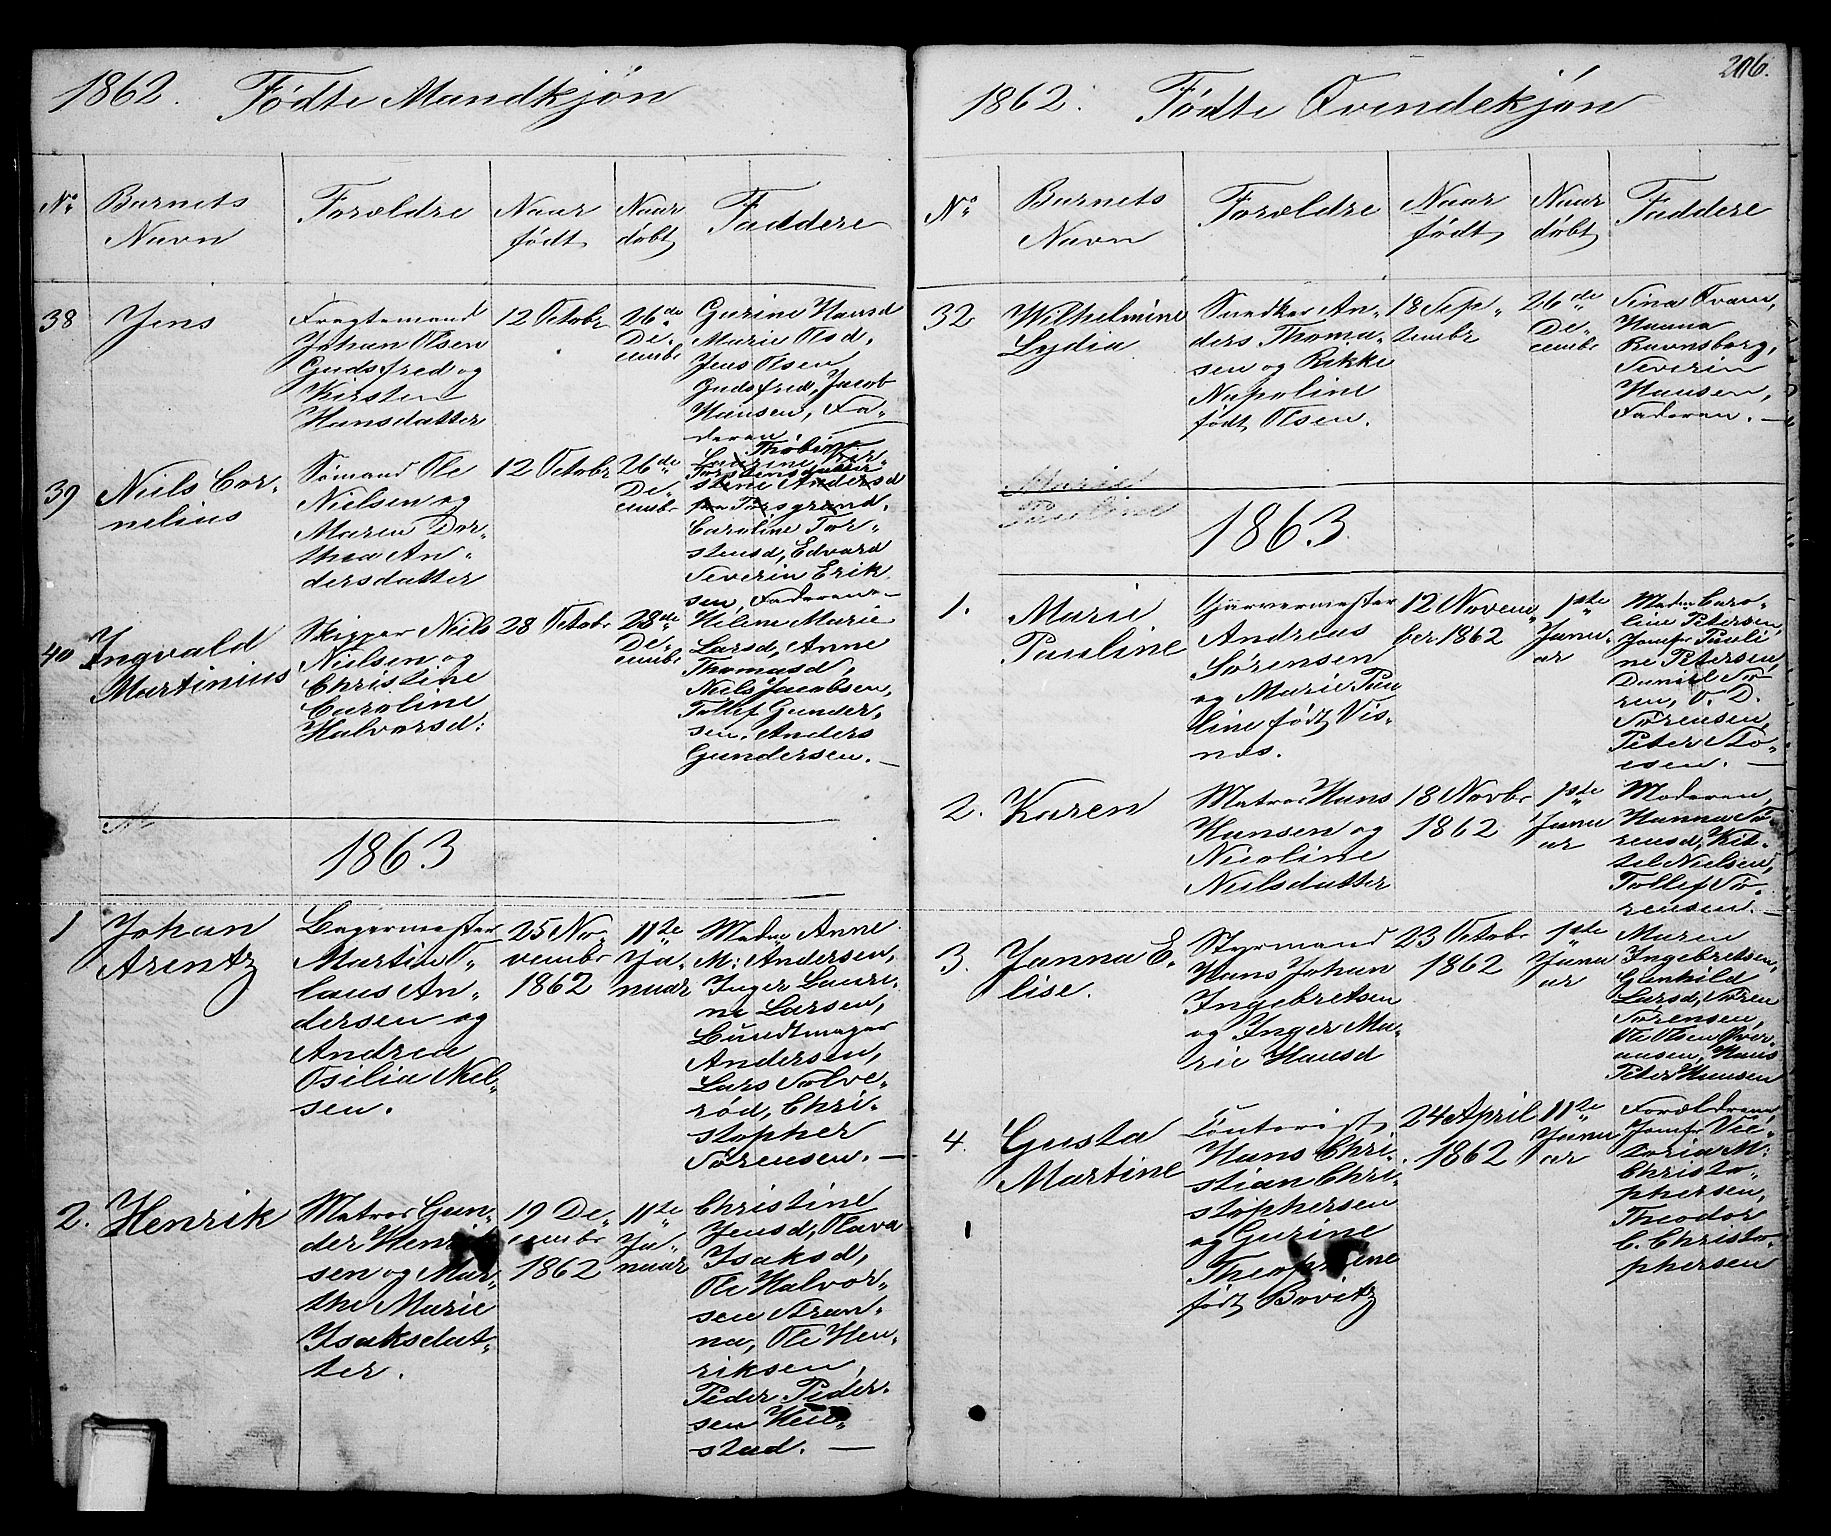 1862. Fødte Mandkjøn
No Barnets Navn Forældre Naar født Naar døbt Faddere
38 Jens
Fragtemand
Johan Olsen
Gudsfred og
Kirsten
Hansdatter
12 Octobr
26de
De-
cembr
Gurine Hansd
Marie Olsd,
Jens Olsen
Gudsfred, Jacob
Hansen, Fa-
deren.
39 Niels Cor-
nelius
Sømand Ole
Nielsen og
Maren Dor-
thea An-
dersdatter
12 Octobr
26de
De-
cembr
Thobine
Torstensdatter
Caroline Tor-
stensd, Edvard
Severin Erik-
sen, Faderen.
40 Ingvald
Martinius
Skipper Niels
Nielsen og
Christine
Caroline
Halvorsd:
28 Octobr
28de
De-
cembr
Helene Marie
Larsd, Anne
Thomasd,
Niels Jacobsen,
Tollef Gunder-
sen, Anders
Gundersen.
1863
1 Johan
Arentz
Bagermester
Martin O-
laus An-
dersen og
Andrea
Osilia Niel-
sen.
25 No-
vembr
1862
11te
Ja-
nuar
Madm Anne
M: Andersen,
Inger Lauri-
ne Larsen,
Bundtmager
Andersen,
Lars Solve-
rød, Chri-
stopher
Sørensen.
2. Henrik
Matros Gun-
der Henrik-
sen og Mar-
the Marie
Isaksdat-
ter.
19 De-
cembr
1862
11te
Ja-
nuar
Christine
Jensd, Olava
Isaksd,
Ole Halvor-
sen Stran-
na, Ole Hen-
riksen,
Peder Peder-
sen Hei-
stad.
206.
1862. Fødte Qvindekjøn
No Barnets Navn Forældre Naar født Naar døbt Faddere
32 Wilhelmine
Lydia
Snedker An-
ders Thoma-
sen og Rikke
Napoline
født Olsen.
18 Sep-
tembr
26de
De-
cembr
Sina Tram,
Hanna
Ravnsborg,
Severin
Hansen,
Faderen.
Marie
Pauline
1863.
1. Marie
Pauline
Garvermester
Andreas
Sørensen
og Marie Pau
line født Vis-
nes.
12 Novem
ber 1862
1ste
Janu-
ar
Madm Caro-
line Petersen,
Jomfr Pauli
ne Petersen,
Daniel Sø-
ren, O. D.
Sørensen,
Peter Stø-
esen.
2. Karen
Matros Hans
Hansen og
Nicoline
Nielsdatter
18 Novbr
1862
1ste
Janu
ar
Moderen,
Hanna Sø-
rensd, Kit-
til Nielsen,
Tollef Sø-
rensen.
3. Janna E-
lise.
Styrmand
Hans Johan
Ingebretsen
og Inger Ma-
rie Hansd
23 Octobr
1862
1ste
Janu
ar
Maren
Ingebretsen,
Gunhild
Larsd, Søren
Sørensen,
Ole Olsen
Peter Hansen
4. Gusta
Martine
Contorist
Hans Chri-
stian Chri-
stophersen
og Gurine
født Bovitz
24 April
1862
11te
Janu
ar
Forældrene,
Jomfr Vic-
toria M:
Christo-
phersen,
Theodor
C. Christo-
phersen